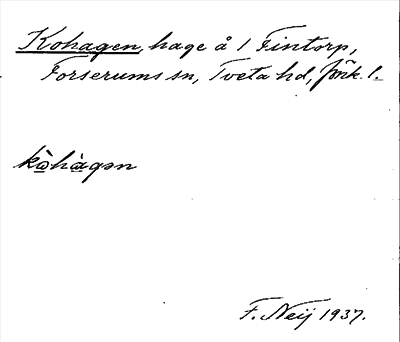 Kohagen, hage å 1 Fintorp,
Forserums sn, Tveta hd, Jönk. l.
kòhàgən
F. Neij 1937.